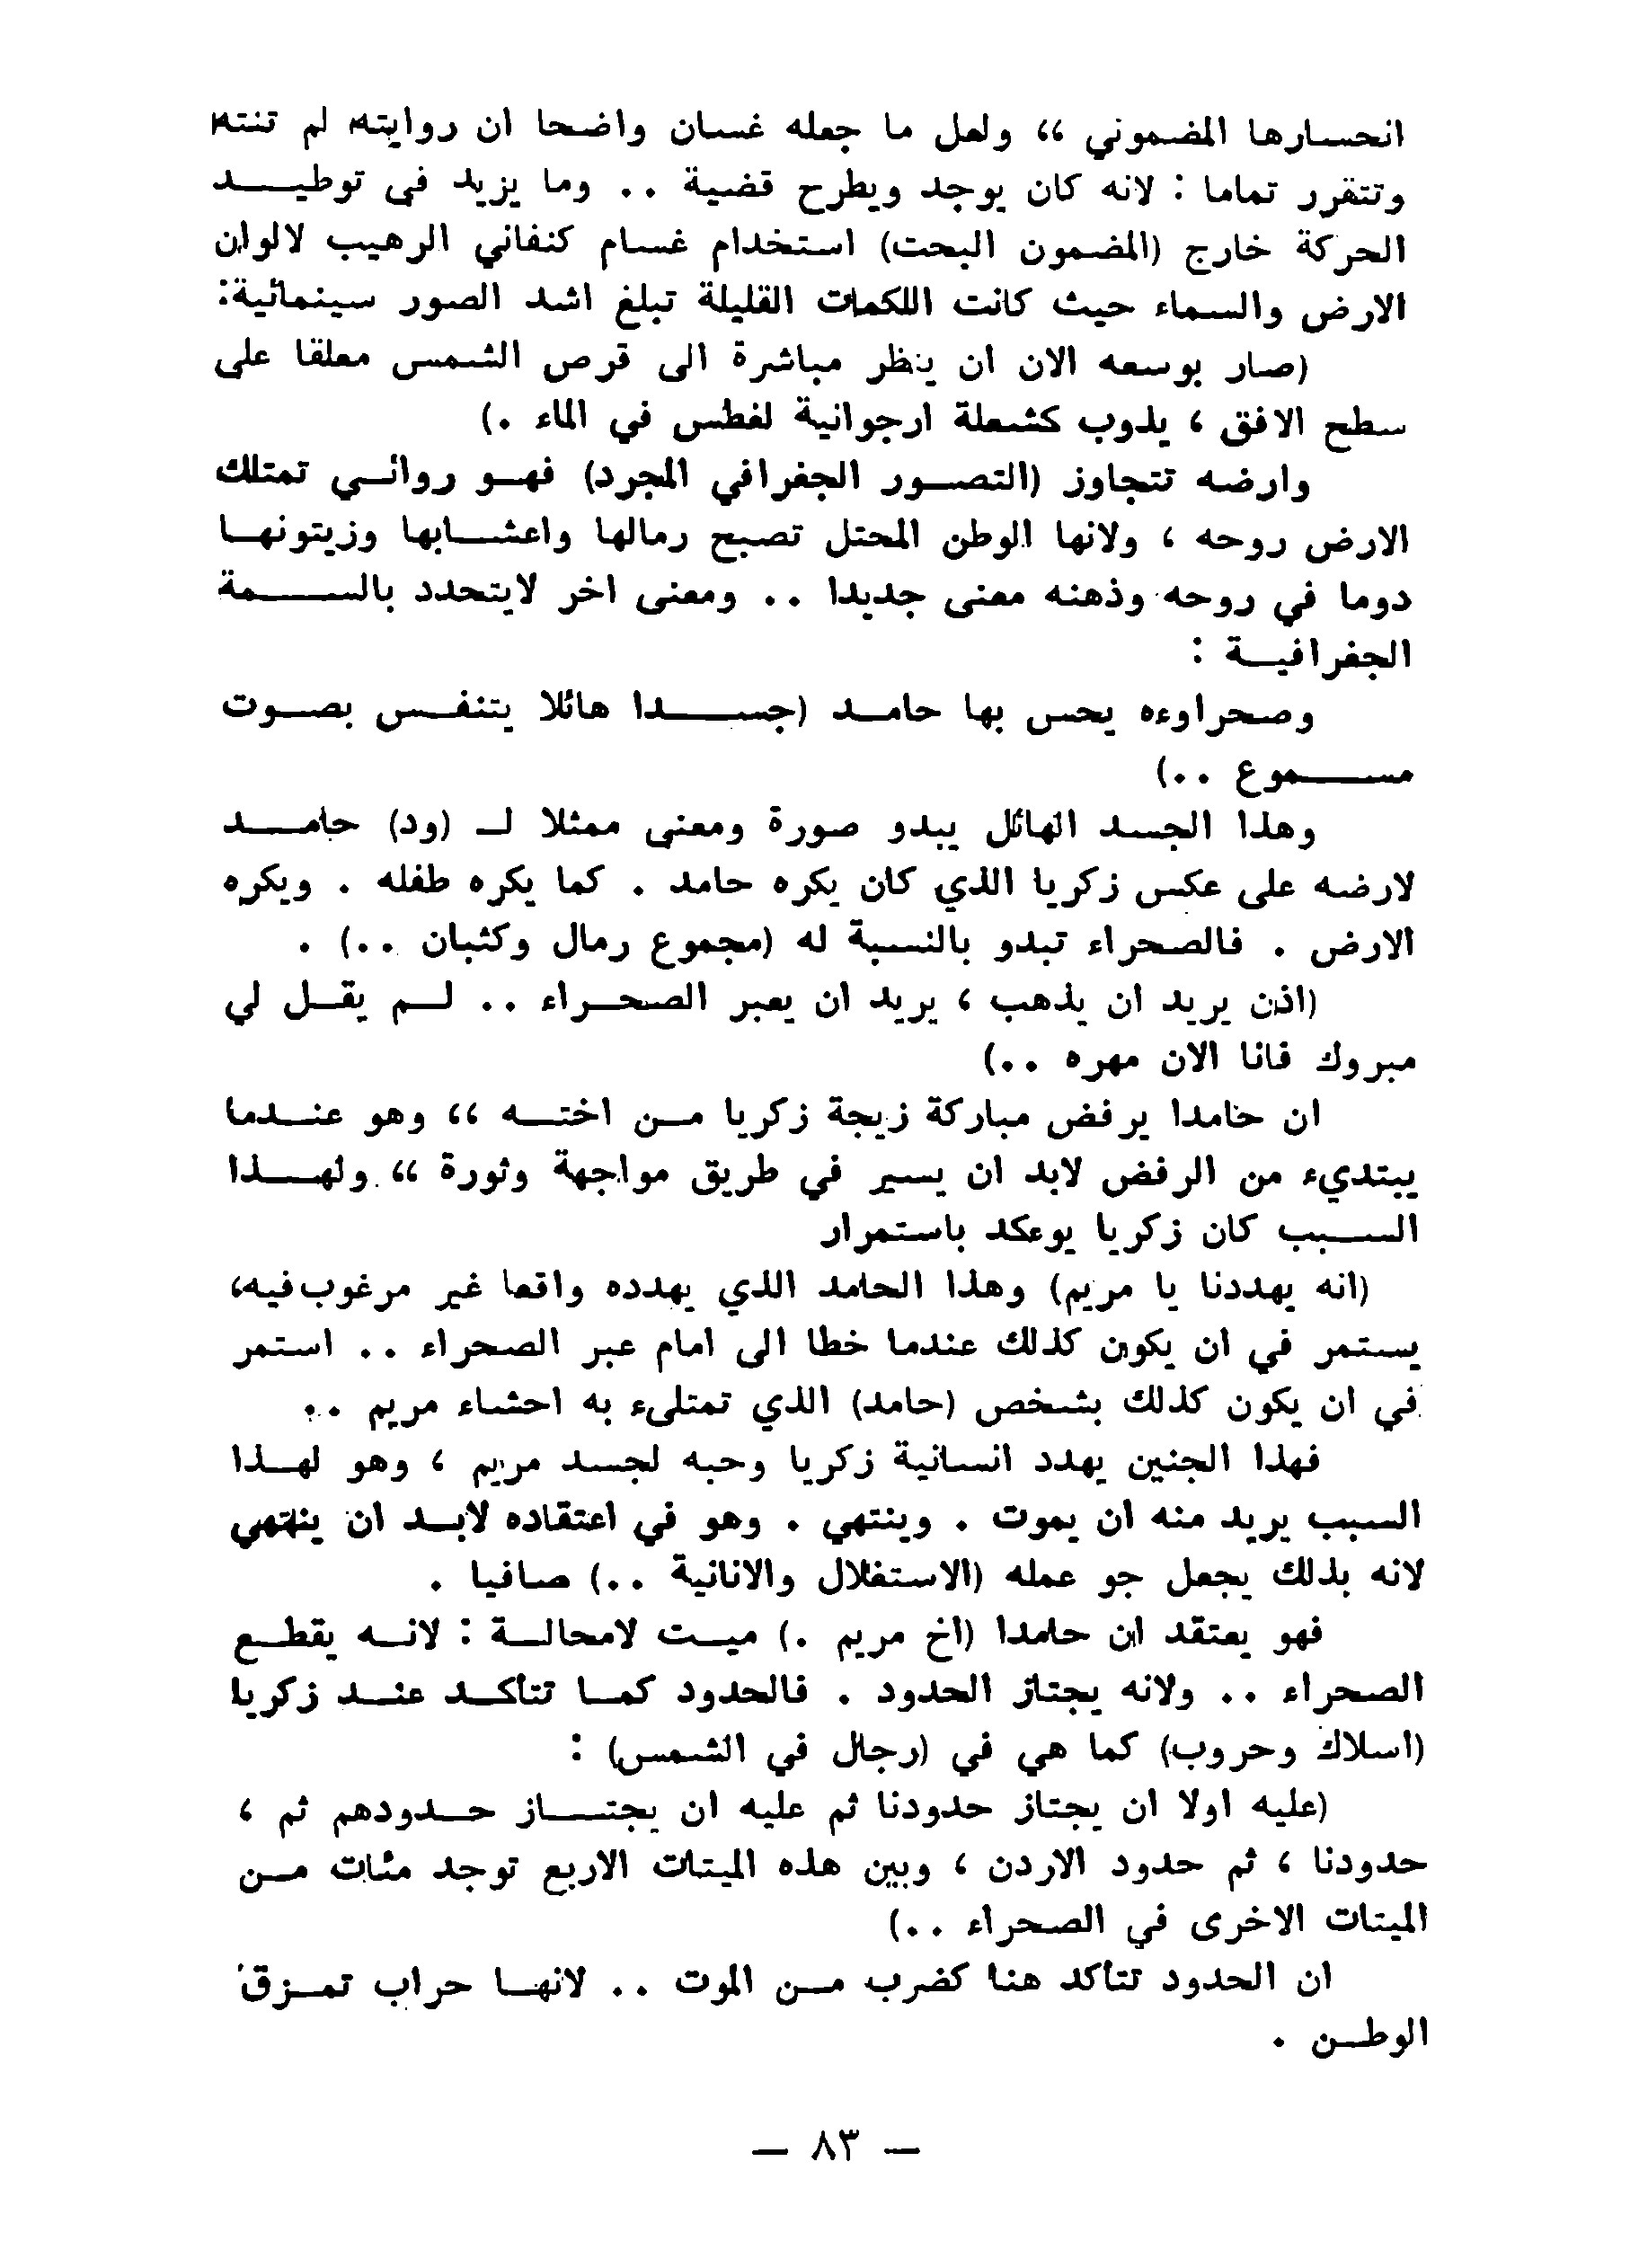 انحسارها المضموني ،، ولعل ما جعله غسان واضحا ان روايته لم تنته
وتتقرر تماما : لانه كان يوجد ويطرح قضية .. وما يزيد في توطيد
الحركة خارج (المضمون البحت) استخدام غسام كنفاني الرهيب لالوان
الارض والسماء حيث كانت اللكمات القليلة تبلغ اشد الصور سينمائية:
(صار بوسعه الان ان ينظر مباشرة الى قرص الشمس معلقا على
سطح الافق ، يذوب كشعلة ارجوانية لغطس في الماء .)
وارضه تتجاوز (التصور الجغرافي المجرد) فهو روائي تمتلك
الارض روحه ، ولانها الوطن المحتل تصبح رمالها واعشابها وزيتونها
دوما في روحه وذهنه معنى جديدا .. ومعنى اخر لايتحدد بالسمة
الجغرافية :
وصحراوءه يحس بها حامد (جسدا هائلا يتنفس بصوت
مسموع ..)
وهذا الجسد الهائل يبدو صورة ومعنى ممثلا لـ (ود) حامد
لارضه على عكس زكريا الذي كان يكره حامد . كما يكره طفله . ويكره
الارض . فالصحراء تبدو بالنسبة له (مجموع رمال وكثبان ..) .
(اذن يريد ان يذهب ، يريد ان يعبر الصحراء .. لم يقل لي
مبروك فانا الان مهره ..)
ان حامدا يرفض مباركة زيجة زكريا من اخته ،، وهو عندما
يبتديء من الرفض لابد ان يسير في طريق مواجهة وثورة ،، ولهذا
السبب كان زكريا يوءكد باستمرار
(انه يهددنا يا مريم) وهذا الحامد الذي يهدده واقعا غير مرغوب فيه،
يستمر في ان يكون كذلك عندما خطا الى امام عبر الصحراء .. استمر
في ان يكون كذلك بشخص (حامد) الذي تمتلىء به احشاء مريم ..
فهذا الجنين يهدد انسانية زكريا وحبه لجسد مريم ، وهو لهذا
السبب يريد منه ان يموت . وينتهي . وهو في اعتقاده لابد ان ينتهي
لانه بذلك يجعل جو عمله (الاستغلال والانانية ..) صافيا .
فهو يعتقد ان حامدا (اخ مريم .) ميت لامحالة : لانه يقطع
الصحراء .. ولانه يجتاز الحدود . فالحدود كما تتاكد عند زكريا
(اسلاك وحروب) كما هي في (رجال في الشمس) :
(عليه اولا ان يجتاز حدودنا ثم عليه ان يجتاز حدودهم ثم ،
حدودنا ، ثم حدود الاردن ، وبين هذه الميتات الاربع توجد مئات من
الميتات الاخرى في الصحراء ..)
ان الحدود تتاكد هنا كضرب من الموت .. لانها حراب تمزق
الوطن .
— ٨٣ —